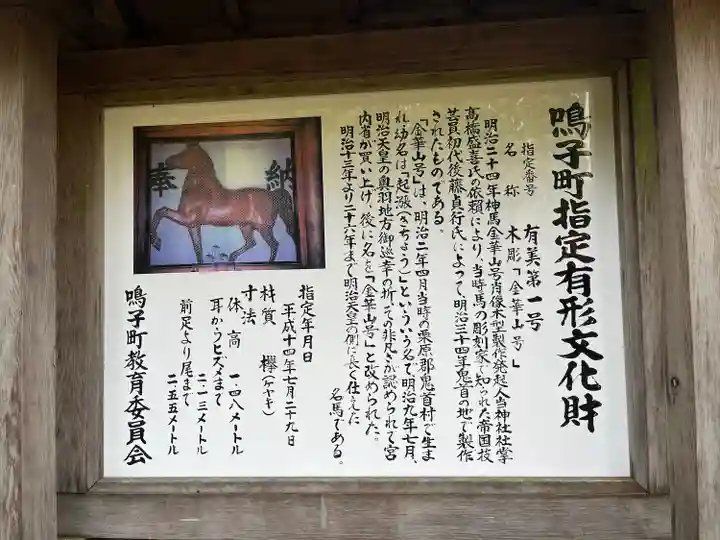 鳴子町指定有形文化財
指定番号　有美第一号
名称　木彫「金華山号」
明治二十四年神馬金華山号肖像木型製作発起人当神社社掌
高橋盛喜氏の依頼により、当時馬の彫刻家で知られた帝国技
芸員初代後藤貞行氏によって、明治三十四年鬼首の地で製作
されたものである。
「金華山号」は、明治二年四月当時の栗原郡鬼首村で生ま
れ幼名は「起漲(きちょう)」といういう名で明治九年七月、
明治天皇の奥羽地方御巡幸の折、その非凡さが認められて宮
内省が買い上げ、後に名を「金華山号」と改められた。
明治十三年より二十六年まで明治天皇の側に長く仕えた
名馬である。
奉納
指定年月日
平成十四年七月二十九日
材質　欅(ケヤキ)
寸法
体高　一・四八メートル
耳からヒズメまで
二・一三メートル
前足より尾まで
二・五五メートル
鳴子町教育委員会